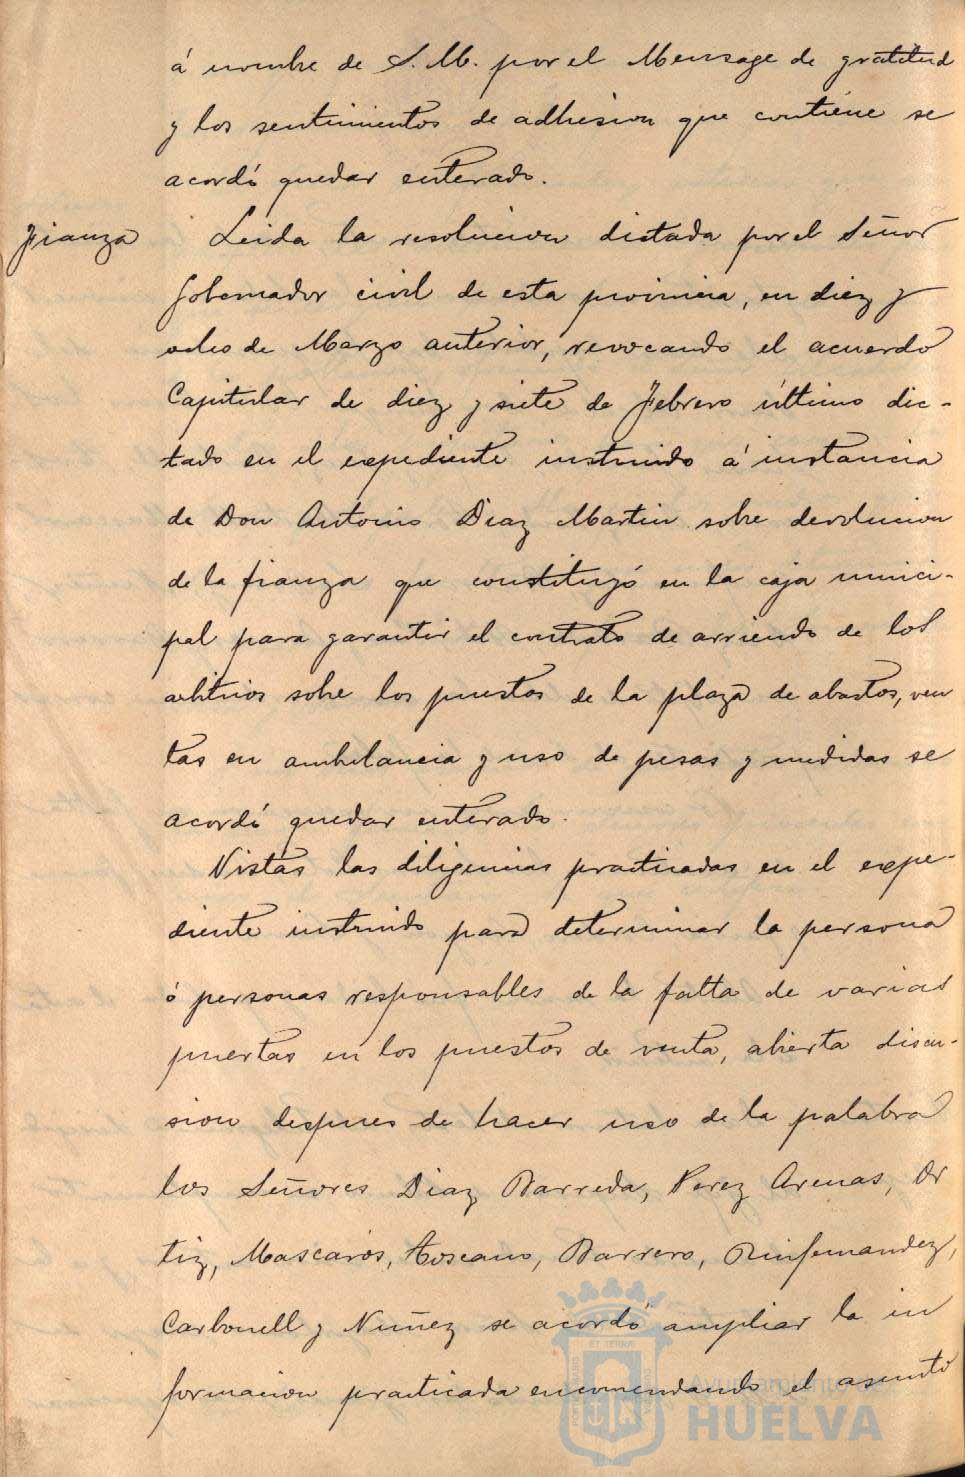 á nombre de S. M. por el Mensage de gratitud
y los sentimientos de adhesion que contiene se
acordó quedar enterado.
fianza
Leida la resolucion dictada por el Señor
Gobernador civil de esta provincia, en diez y
ocho de Marzo anterior, revocando el acuerdo
Capitular de diez y siete de Febrero último dic-
tado en el expediente instruido á instancia
de Don Antonio Diaz Martin sobre devolucion
de la fianza que constituyó en la caja munici-
pal para garantir el contrato de arriendo de los
arbitrios sobre los puestos de la plaza de abastos, ven
tas en ambulancia y uso de pesas y medidas se
acordó quedar enterado.
Vistas las diligencias practicadas en el expe-
diente instruido para determinar la persona
ó personas responsables de la falta de varias
puertas en los puestos de venta, abierta discu-
sion despues de hacer uso de la palabra
los Señores Diaz Barreda, Perez Arenas, Or
tiz, Mascarós, Toscano, Barrero, Rinfernandez,
Carbonell y Nuñez se acordó ampliar la in
formacion practicada encomendando el asunto
Ayuntamiento de
HUELVA